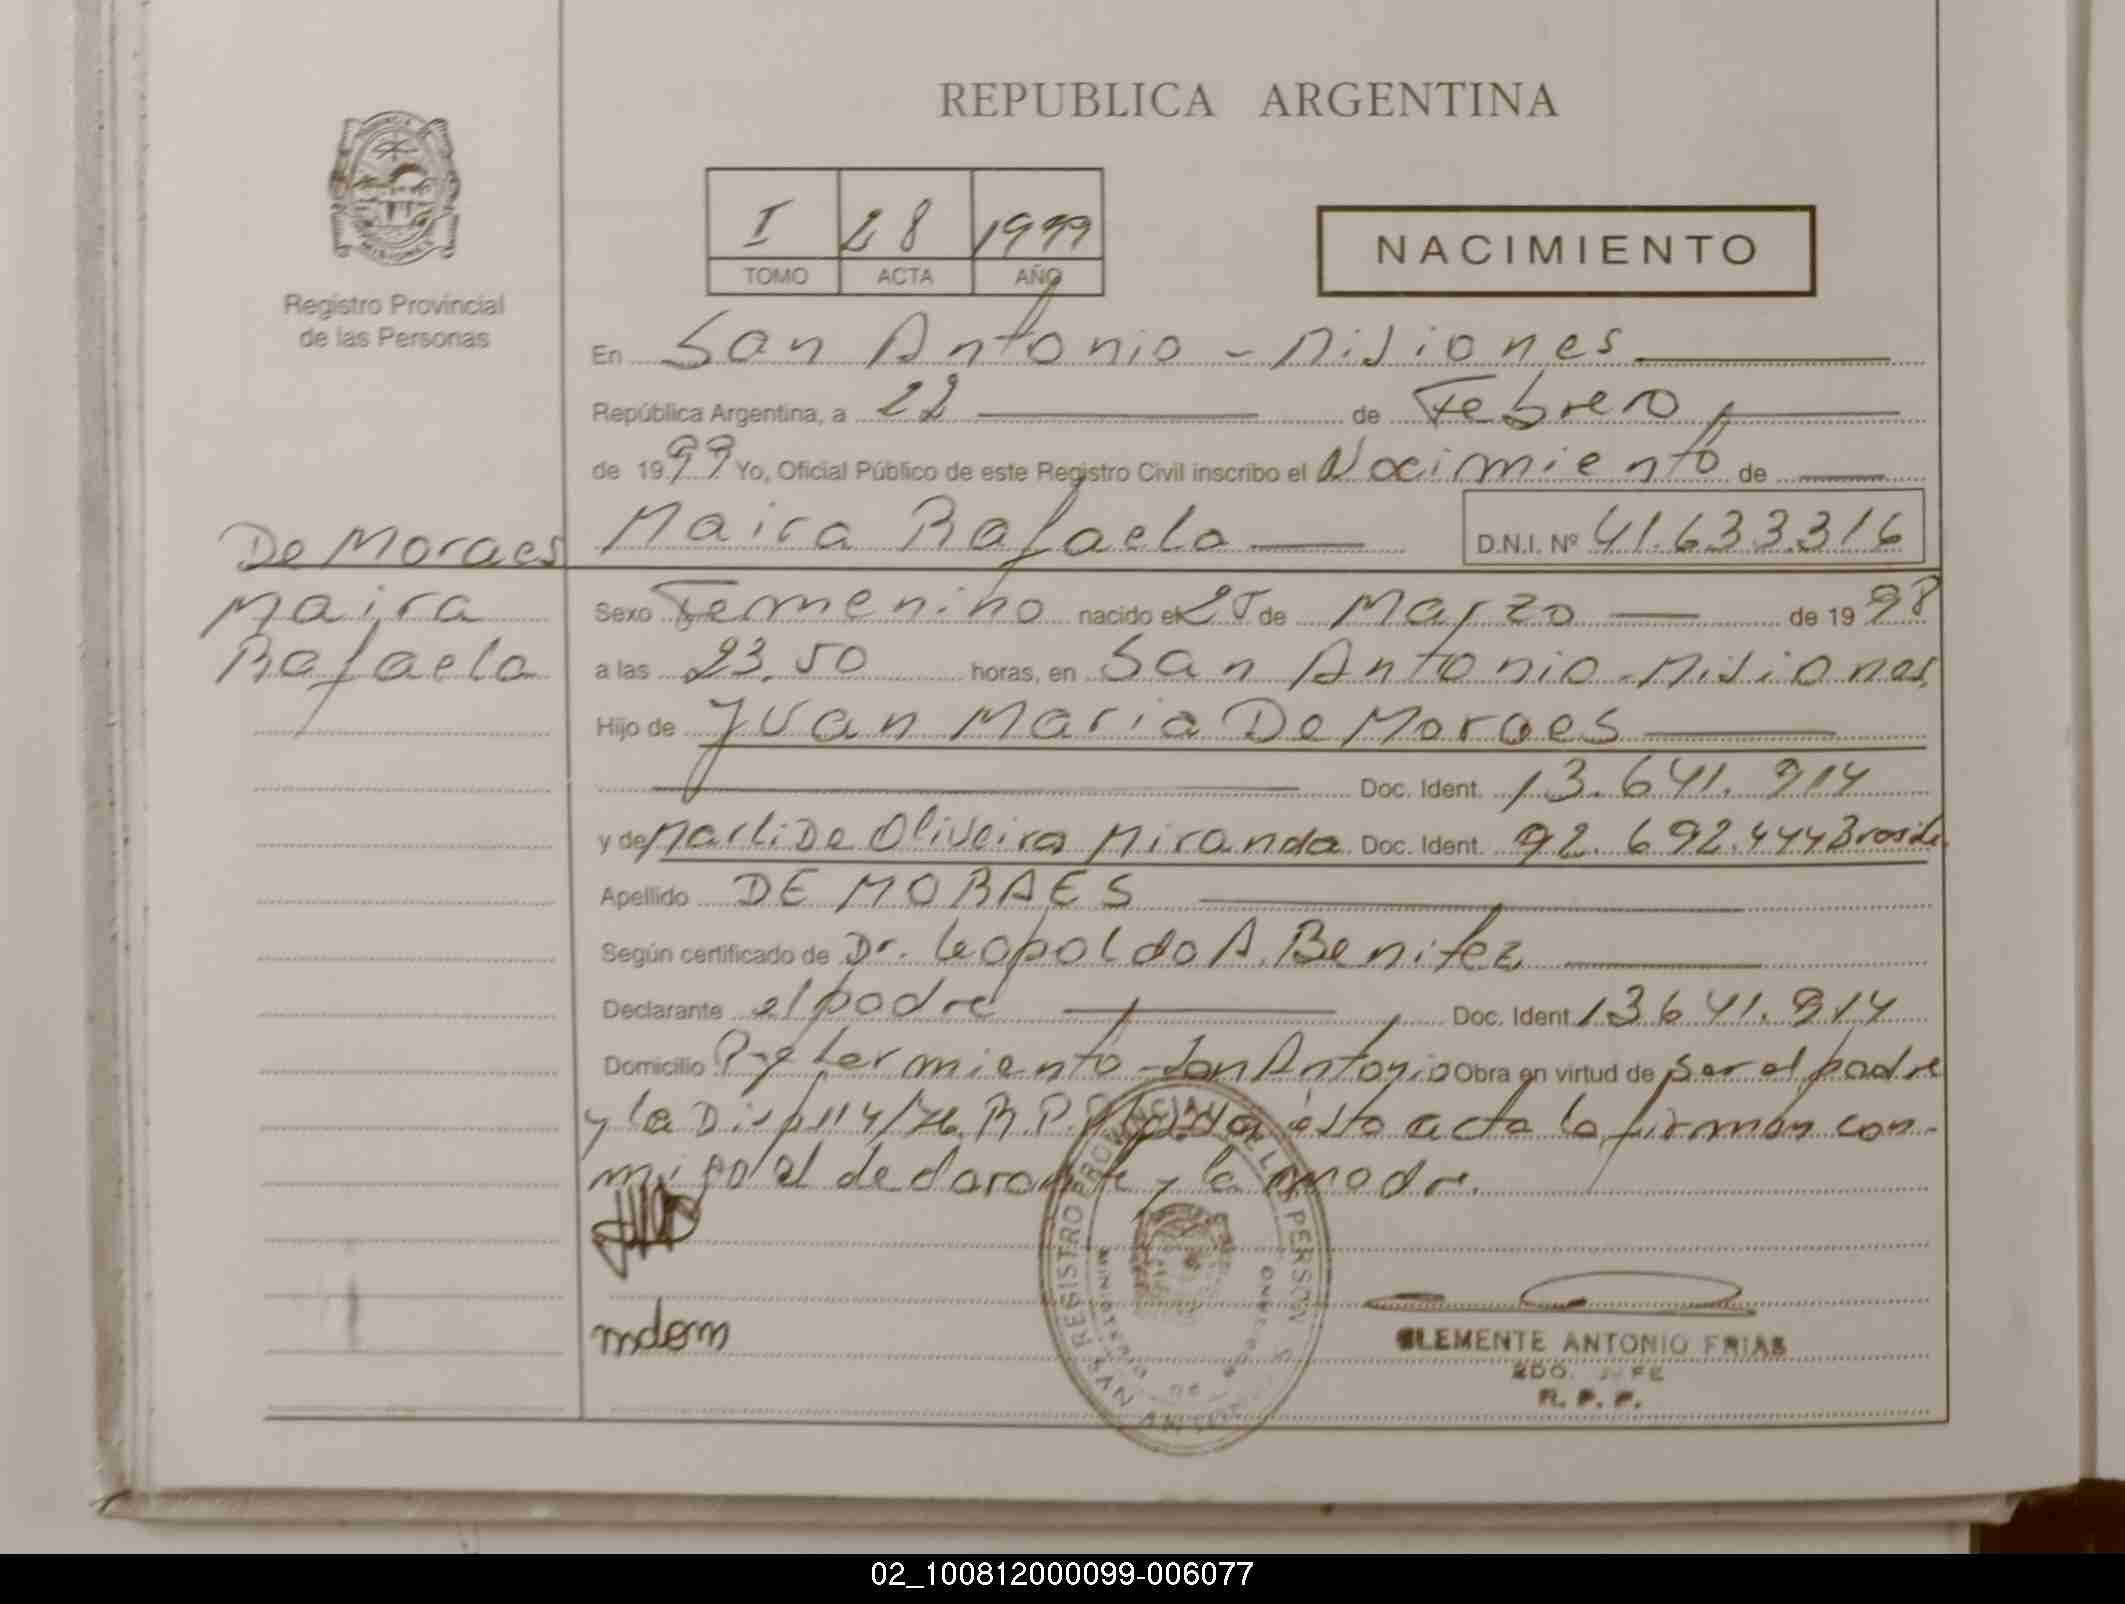 REPUBLICA ARGENTINA
I 28 1999
TOMO ACTA AÑO
NACIMIENTO
Registro Provincial
de las Personas
En San Antonio - Misiones
República Argentina, a 22 de Febrero
de 1999 Yo, Oficial Público de este Registro Civil inscribo el Nacimiento de
Maira Rafaela D.N.I. Nº 41.633.316
De Moraes
Maira
Rafaela
Sexo Femenino nacido el 25 de Marzo de 1998
a las 23.50 horas, en San Antonio - Misiones
Hijo de Juan Maria De Moraes
Doc. Ident. 13.641.914
y de Marli De Oliveira Miranda Doc. Ident. 92.692.444 Brasile
Apellido DE MORAES
Según certificado de Dr. Leopoldo A. Benitez
Declarante el padre Doc. Ident 13641.914
Domicilio San Antonio Obra en virtud de ser el padre
y la Disp. 114/76. R.P.P. ésta acta la firman con-
migo el declarante y la madre.
mdom
REGISTRO PROVINCIAL DE LAS PERSONAS
CLEMENTE ANTONIO FRIAS
2DO. JEFE
R. P. P.
02_100812000099-006077